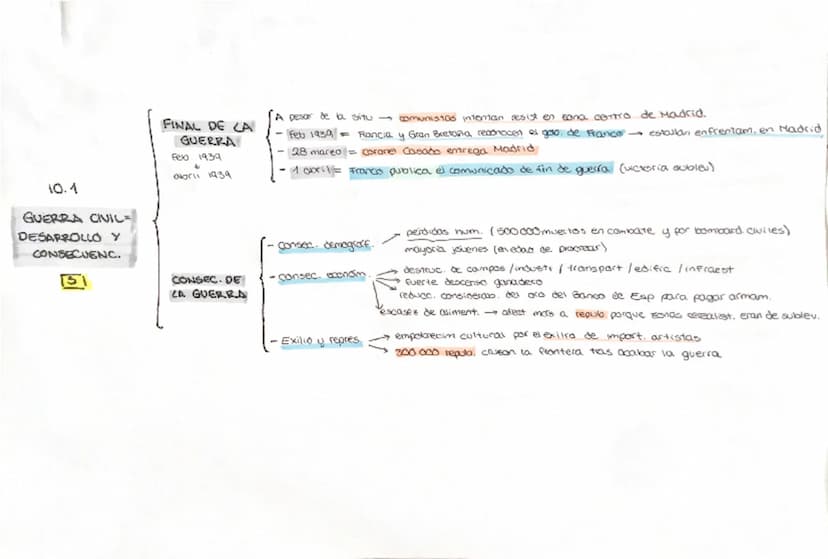 10.1
GUERRA CIVIL=
DESARROLLO Y
CONSECUENC.
3
FINAL DE LA
GUERRA
Feb 1939
abril 1939
A pesar de la situ → comunistas intentan resist en zona centro de Madrid.
- Feb 1939 = Francia y Gran Bretaña reconocen el gob. de Franco → estallan enfrentam. en Madrid
- 28 marzo = coronel Casado entrega Madrid
- 1 abril = Franco publica el comunicado de fin de guerra (victoria sublev)
CONSEC. DE
LA GUERRA
- Consec. demográf.
perdidas hum. (500000 muertos en combate y por bombard. civiles)
mayoría jóvenes (en edad de procrear)
- Consec. económ.
destruc. de campos / industr / transport / edific / infraest
fuerte descenso ganadero
reducc. considerab. del oro del Banco de Esp para pagar armam.
escases de aliment. → afect más a republ porque zonas cerealist. eran de sublev.
- Exilio y repres.
empobrecim cultural por el exilio de import. artistas
300 000 republ. cruzan la frontera tras acabar la guerra